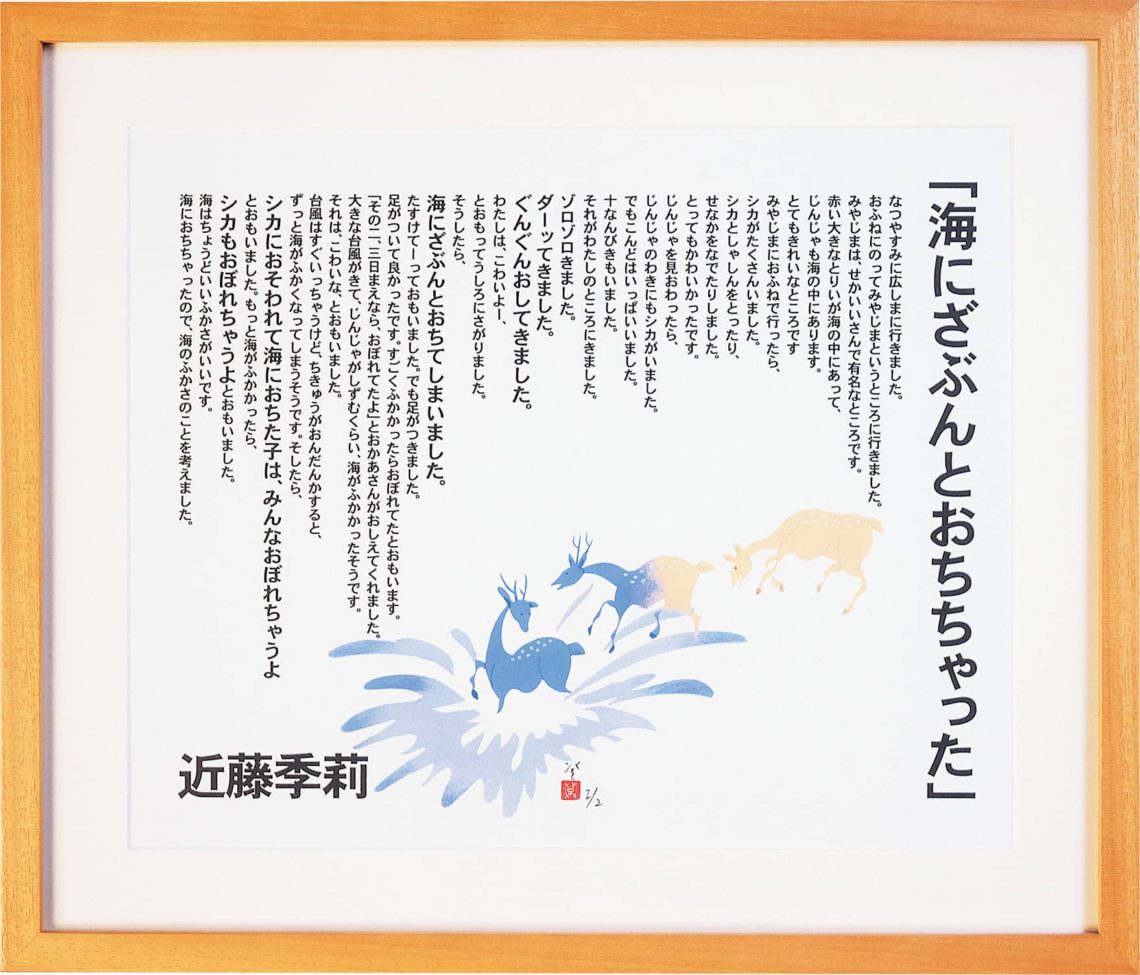 「海にざぶんとおちちゃった」
なつやすみに広しまに行きました。
おふねにのってみやじまというところに行きました。
みやじまは、せかいいさんで有名なところです。
赤い大きなとりいが海の中にあって、
じんじゃも海の中にあります。
とてもきれいなところです
みやじまにおふねで行ったら、
シカがたくさんいました。
シカとしゃしんをとったり、
せなかをなでたりしました。
とってもかわいかったです。
じんじゃを見おわったら、
じんじゃのわきにもシカがいました。
でもこんどはいっぱいいました。
十なんびきもいました。
それがわたしのところにきました。
ゾロゾロきました。
ダーッてきました。
ぐんぐんおしてきました。
わたしは、こわいよー、
とおもってうしろにさがりました。
そうしたら、
海にざぶんとおちてしまいました。
たすけてーっておもいました。でも足がつきました。
足がついて良かったです。すごくふかかったらおぼれてたとおもいます。
「その二、三日まえなら、おぼれてたよ」とおかあさんがおしえてくれました。
大きな台風がきて、じんじゃがしずむくらい、海がふかかったそうです。
それは、こわいな、とおもいました。
台風はすぐいっちゃうけど、ちきゅうがおんだんかすると、
ずっと海がふかくなってしまうそうです。そしたら、
シカにおそわれて海におちた子は、みんなおぼれちゃうよ
とおもいました。もっと海がふかかったら、
シカもおぼれちゃうよとおもいました。
海はちょうどいいふかさがいいです。
海におちちゃったので、海のふかさのことを考えました。
近藤季莉
2/2